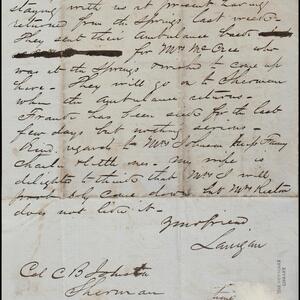 staying with us at present having
returned from the Springs last week
They sent their ambulance back
for Mrs McCree who
was at the Springs & to come up
here - They will go on to Sherman
when the ambulance returns -
Frank has been sick for the last
few days but nothing serious -
Kind regards to Mrs Johnson Harris Fanny
Charlie & little ones - My wife is
delighted to think that Mrs J will
come down but Mrs Keeton
does not like it -
Your friend
Lanigan
Col C B
Sherman